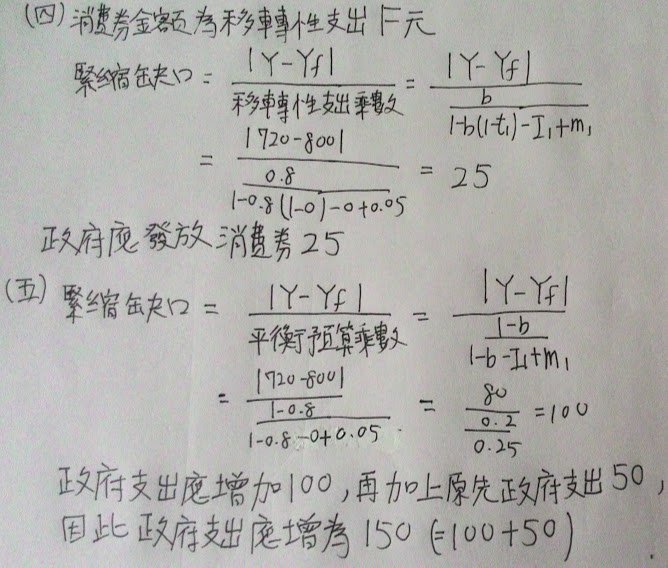 (四) 消費券金額為移轉性支出 F元
緊縮缺口 = |Y-Yf| / 移轉性支出乘數 = |Y-Yf| / (b / 1-b(1-t₁)-I₁+m₁)
= |720-800| / (0.8 / 1-0.8(1-0)-0+0.05) = 25
政府應發放消費券25
(五) 緊縮缺口 = |Y-Yf| / 平衡預算乘數 = |Y-Yf| / (1-b / 1-b-I₁+m₁)
= |720-800| / (1-0.8 / 1-0.8-0+0.05) = 80 / (0.2 / 0.25) = 100
政府支出應增加100,再加上原先政府支出50,
因此政府支出應增為150 (=100+50)